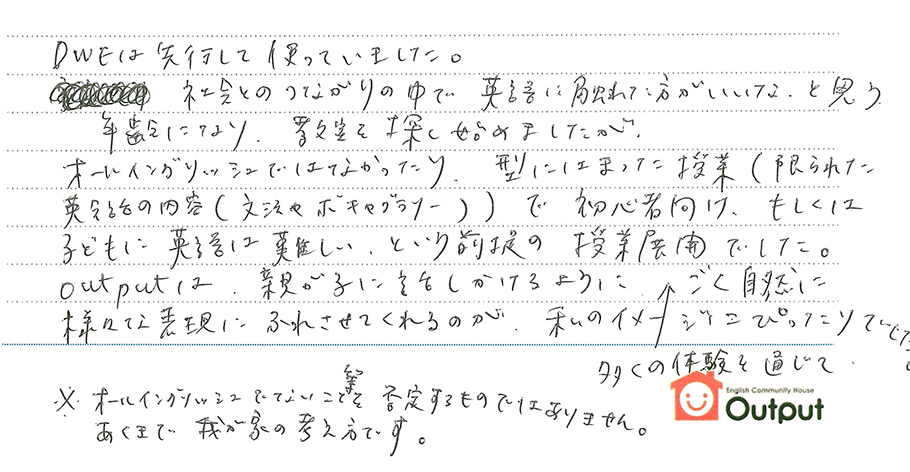 DWEは先行して使っていました。
社会とのつながりの中で英語に触れた方がいいな、と思う
年齢になり、教室を探し始めましたが、
オールイングリッシュではなかったり、型にはまった授業(限られた
英会話の内容(文法やボキャブラリー))で初心者向け、もしくは
子どもに英語は難しい、という前提の授業展開でした。
outputは、親が子に話しかけるように、ごく自然に
様々な表現にふれさせてくれるのが、私のイメージにぴったりでした。
多くの体験を通じて、
※オールイングリッシュでないこと等を否定するものではありません。
あくまで我が家の考え方です。
English Community House
Output